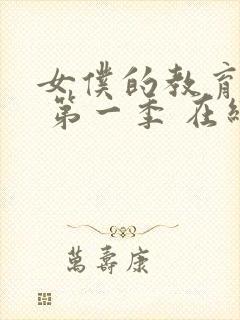 女僕的教育
第一季 在
萬壽康